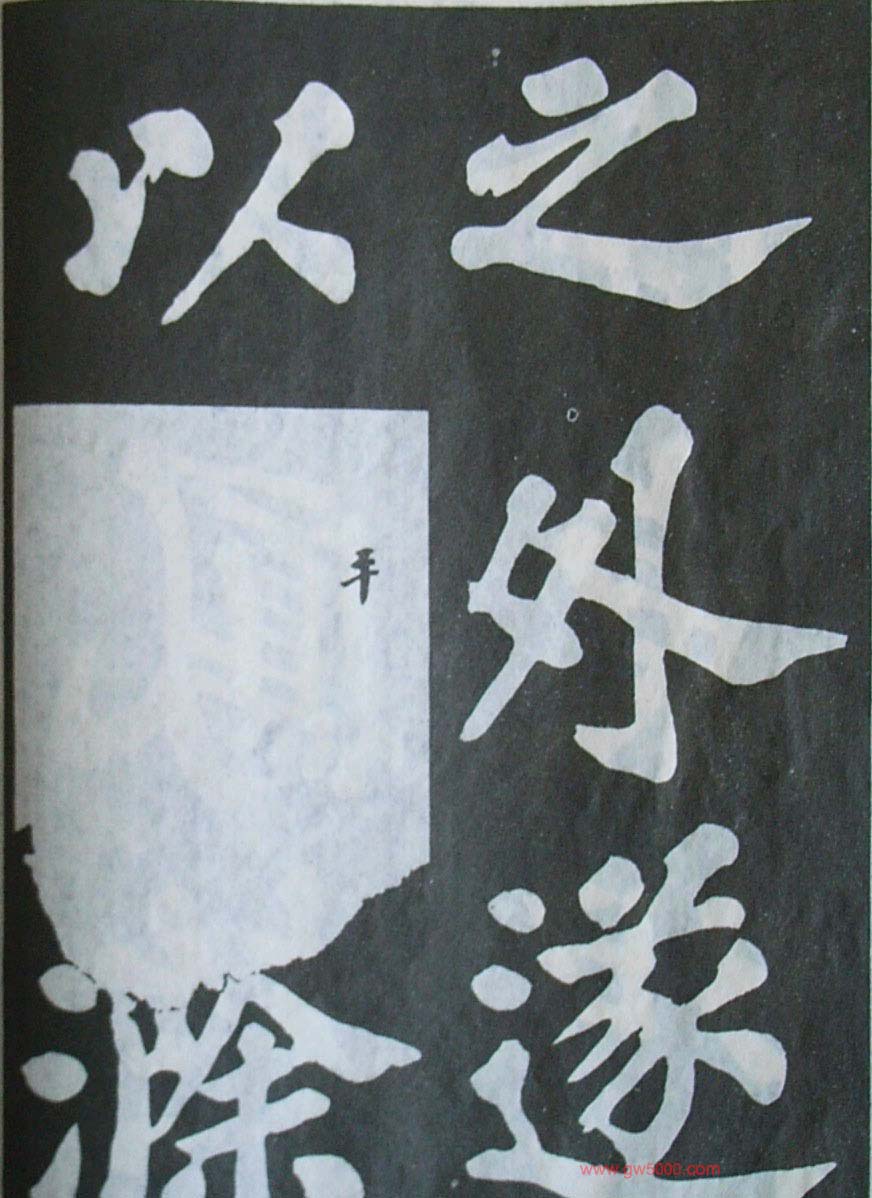 之外遂
以平滁
www.gw5000.com